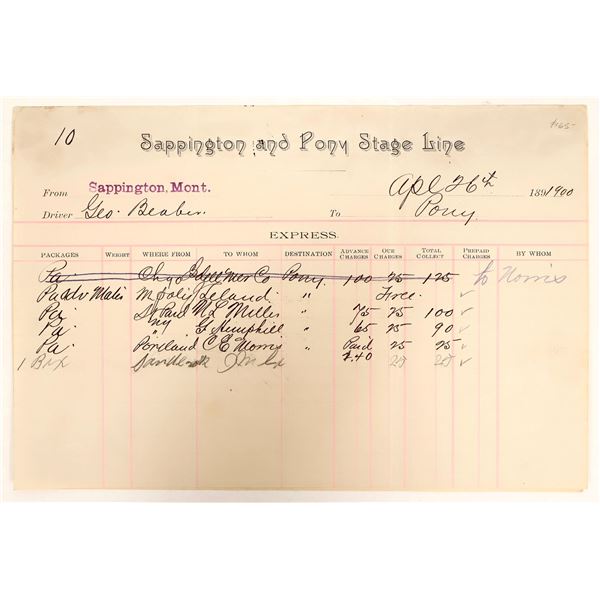 10
$165-
Sappington and Pony Stage Line
From Sappington, Mont. Apl 26th 1891900
Driver Geo. Beaber To Pony
EXPRESS.
PACKAGES WEIGHT WHERE FROM TO WHOM DESTINATION ADVANCE CHARGES OUR CHARGES TOTAL COLLECT PREPAID CHARGES BY WHOM
Pa Chgo Mer Co Pony 100 25 125 to Norris
M polis Leland " Free. ✓
Pa St Paul M L Miller " 75 25 100 ✓
Pa NY G Hemphill " 65 25 90 ✓
Pa Portland C E Morris " Paid 25 25 ✓
1 Box 2.40 25 25 ✓